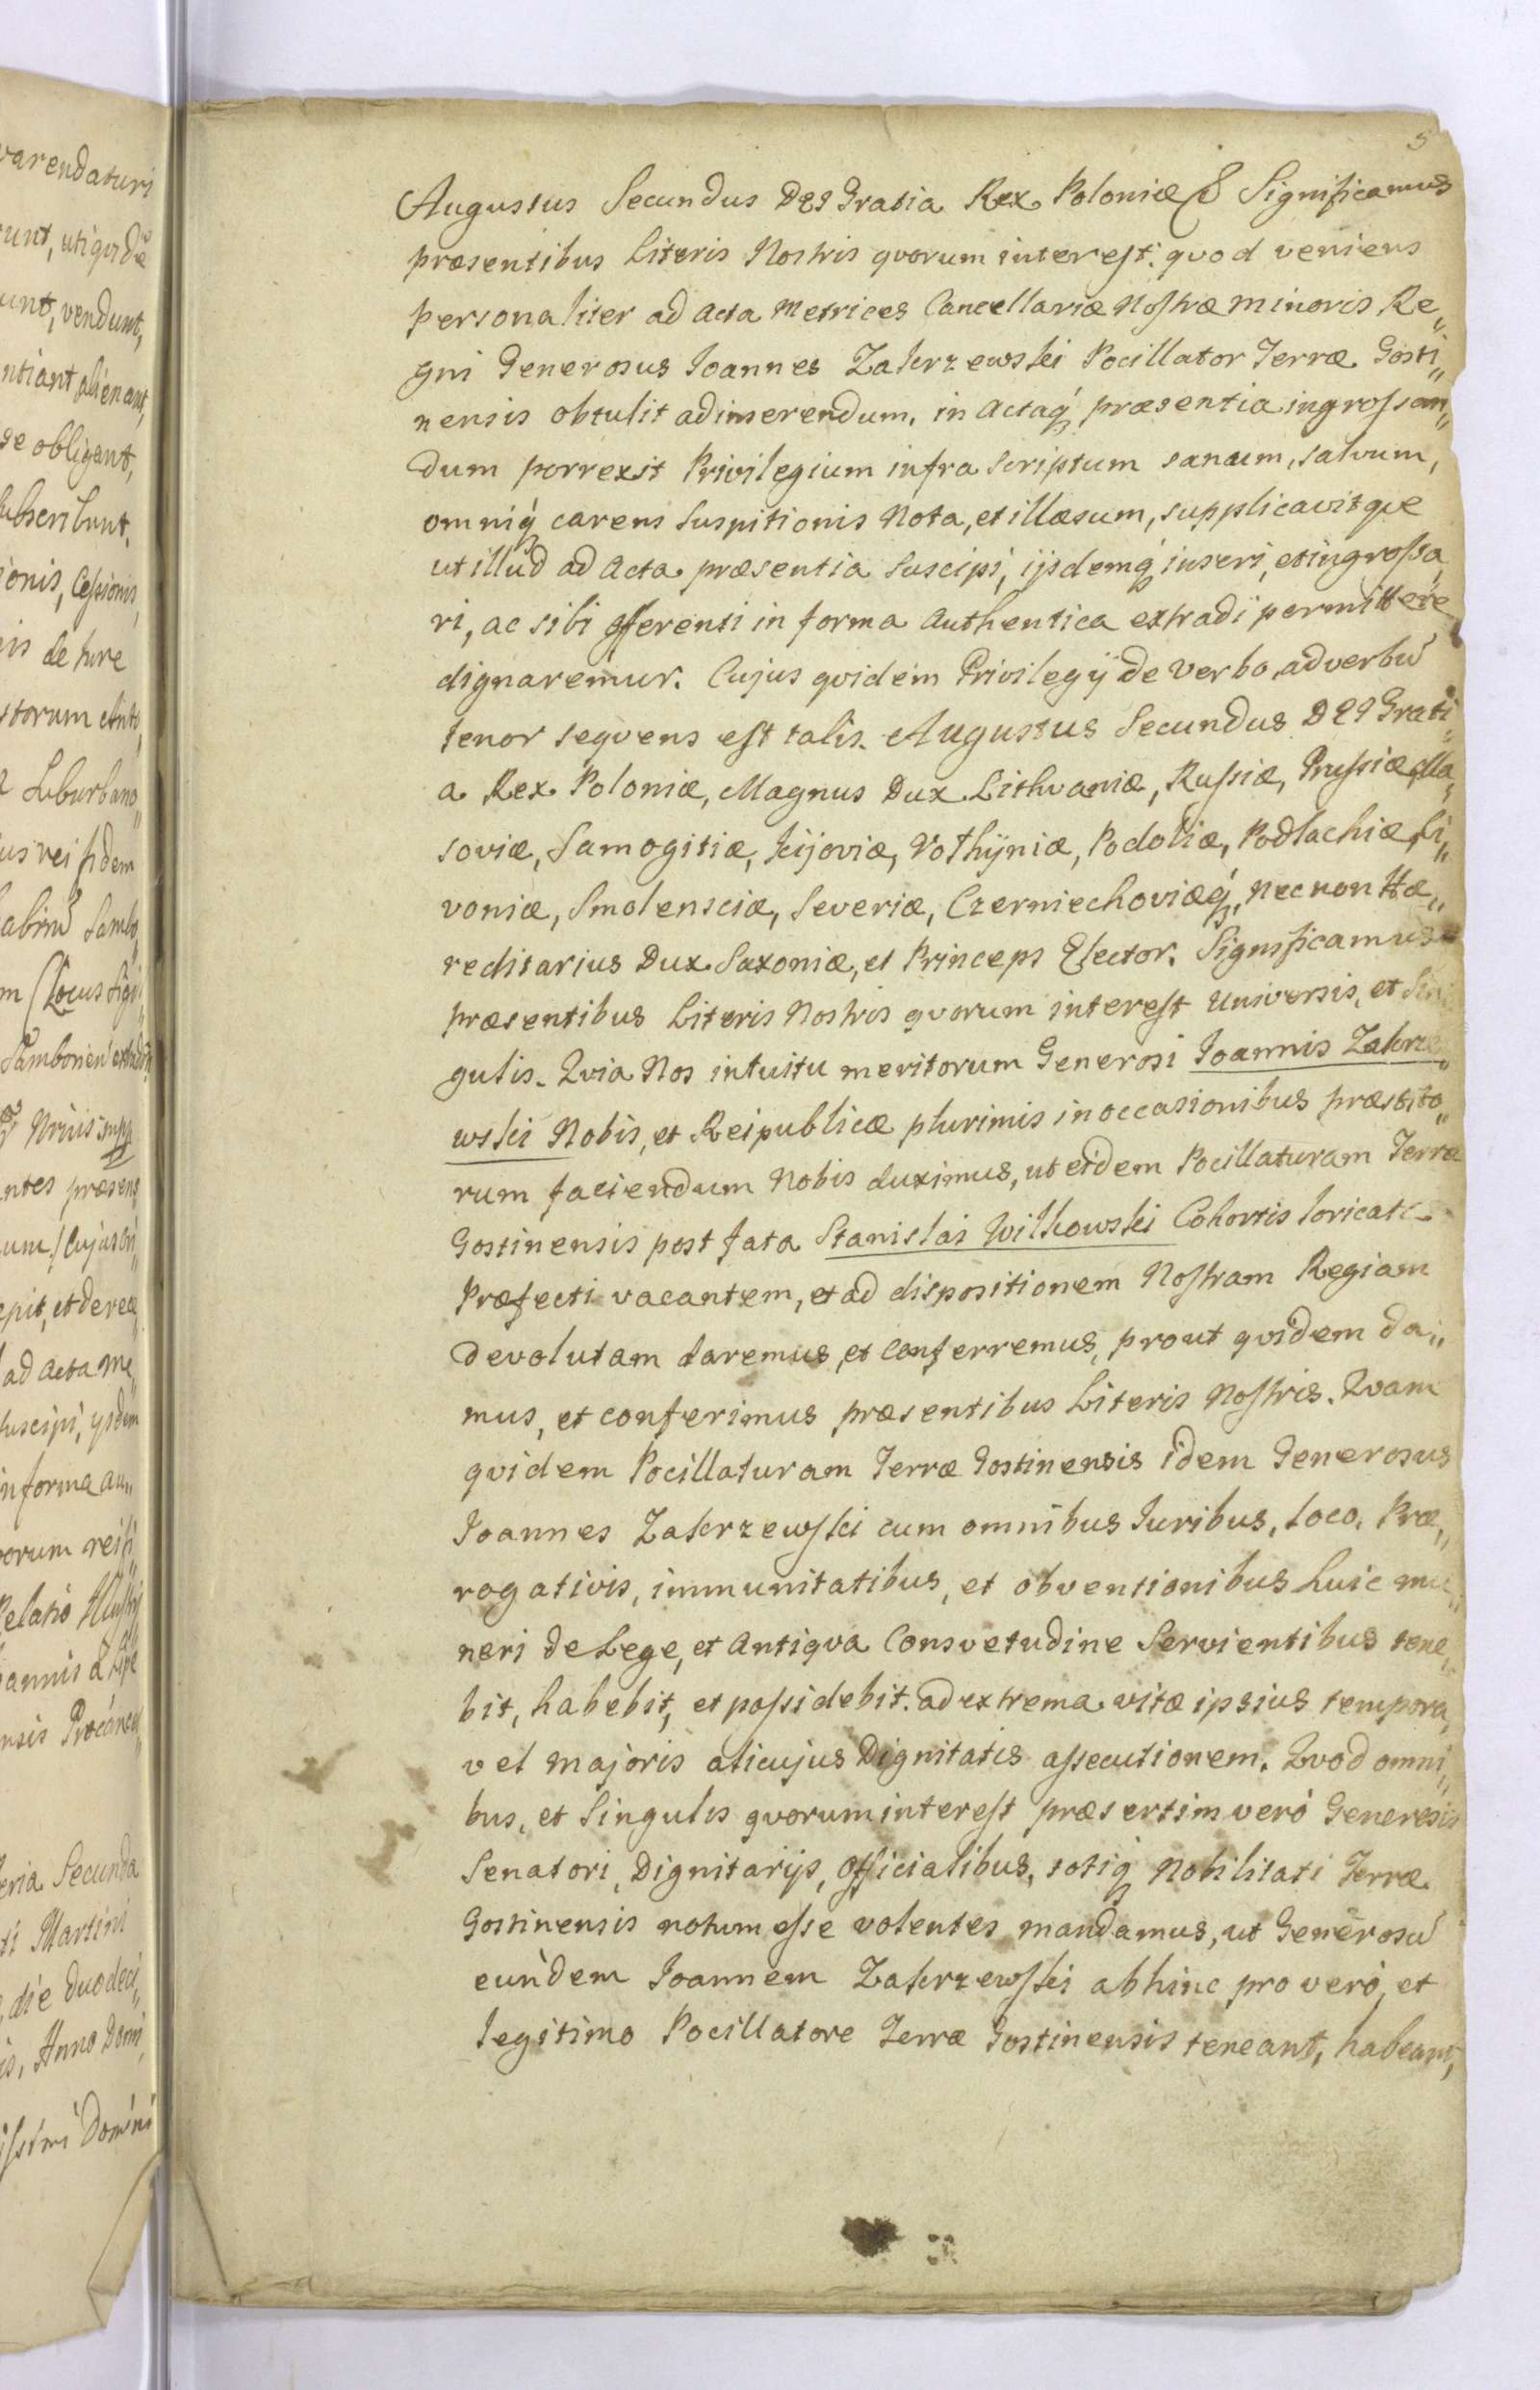 varendaturi
unt, uti qvidē
unt, vendunt,
ntiant, alienant,
se obligant,
subscribunt.
ionis, Cessionis
is de jure
storum Anto
Suburbano
us rei fidem
m (Locus Sigil
Nriūs supp
ntes præsens
um) Cujus
epit, et de rec
ad Acta Me
suscipi, ijsdem
in forma au„
orum rei fi
Relatio Illustri
oannis
ensis Procan
eria Secunda
ti Martini
die duodeci
is, Anno Domi
issimi Domini
5
Augustus Secundus DEI Gratia Rex Poloniæ & Significamus
præsentibus Literis Nostris qvorum interest. qvod veniens
personaliter ad Acta Metrices Cancellariæ Nostræ minoris Re„
gni Generosus Ioannes Zakrzewski Pocillator Terræ Gosti„
nensis obtulit ad inserendum, in Actaq́ præsentia ingrossan„
dum porrexit Privilegium infra scriptum sanum, salvum,
omniq́ carens Suspitionis Nota, et illæsum, supplicavitqve
ut illud ad Acta præsentia suscipi, ijsdemq́ inseri, et ingrossa„
ri, ac sibi offerenti in forma Authentica extradi permittere
dignaremur. Cujus qvidem Privilegij de verbo ad verbū
tenor seqvens est talis. Augustus Secundus DEI Grati„
a Rex Poloniæ, Magnus Dux Lithvaniæ, Russiæ, Prussiæ, Ma„
soviæ, Samogitiæ, Kijoviæ, Volhyniæ, Podoliæ, Podlachiæ, Li„
voniæ, Smolensciæ, Severiæ, Czerniechoviæq́, nec non Hæ„
reditarius Dux Saxoniæ, et Princeps Elector. Significamus
præsentibus Literis Nostris qvorum interest Universis, et Sin
gulis. Qvia Nos intuitu meritorum Generosi Ioannis Zakrze„
wski Nobis, et Reipublicæ plurimis in occasionibus præstito„
rum faciendum Nobis duximus, ut eidem Pocillaturam Terræ
Gostinensis post fata Stanislai Wilkowski Cohortis loricatæ
Præfecti vacantem, et ad dispositionem Nostram Regiam
devolutam daremus, et conferremus, prout qvidem da„
mus, et conferimus præsentibus Literis Nostris. Qvam
qvidem Pocillaturam Terræ Gostinensis idem Generosus
Ioannes Zakrzewski cum omnibus Iuribus, loco, Præ„
rogativis, immunitatibus, et obventionibus huic mu„
neri de Lege, et Antiqva Consvetudine Servientibus tene„
bit, habebit, et possidebit. ad extrema vitæ ipsius tempora,
vel majoris alicujus Dignitatis assecutionem. Qvod omni„
bus, et Singulis qvorum interest præsertim verò Generosis
Senatori, Dignitarijs, Officialibus, totiq́ Nobilitati Terræ
Gostinensis notum esse volentes mandamus, ut Generosū
eundem Ioannem Zakrzewski abhinc pro vero, et
legitimo Pocillatore Terræ Gostinensis teneant, habeant,